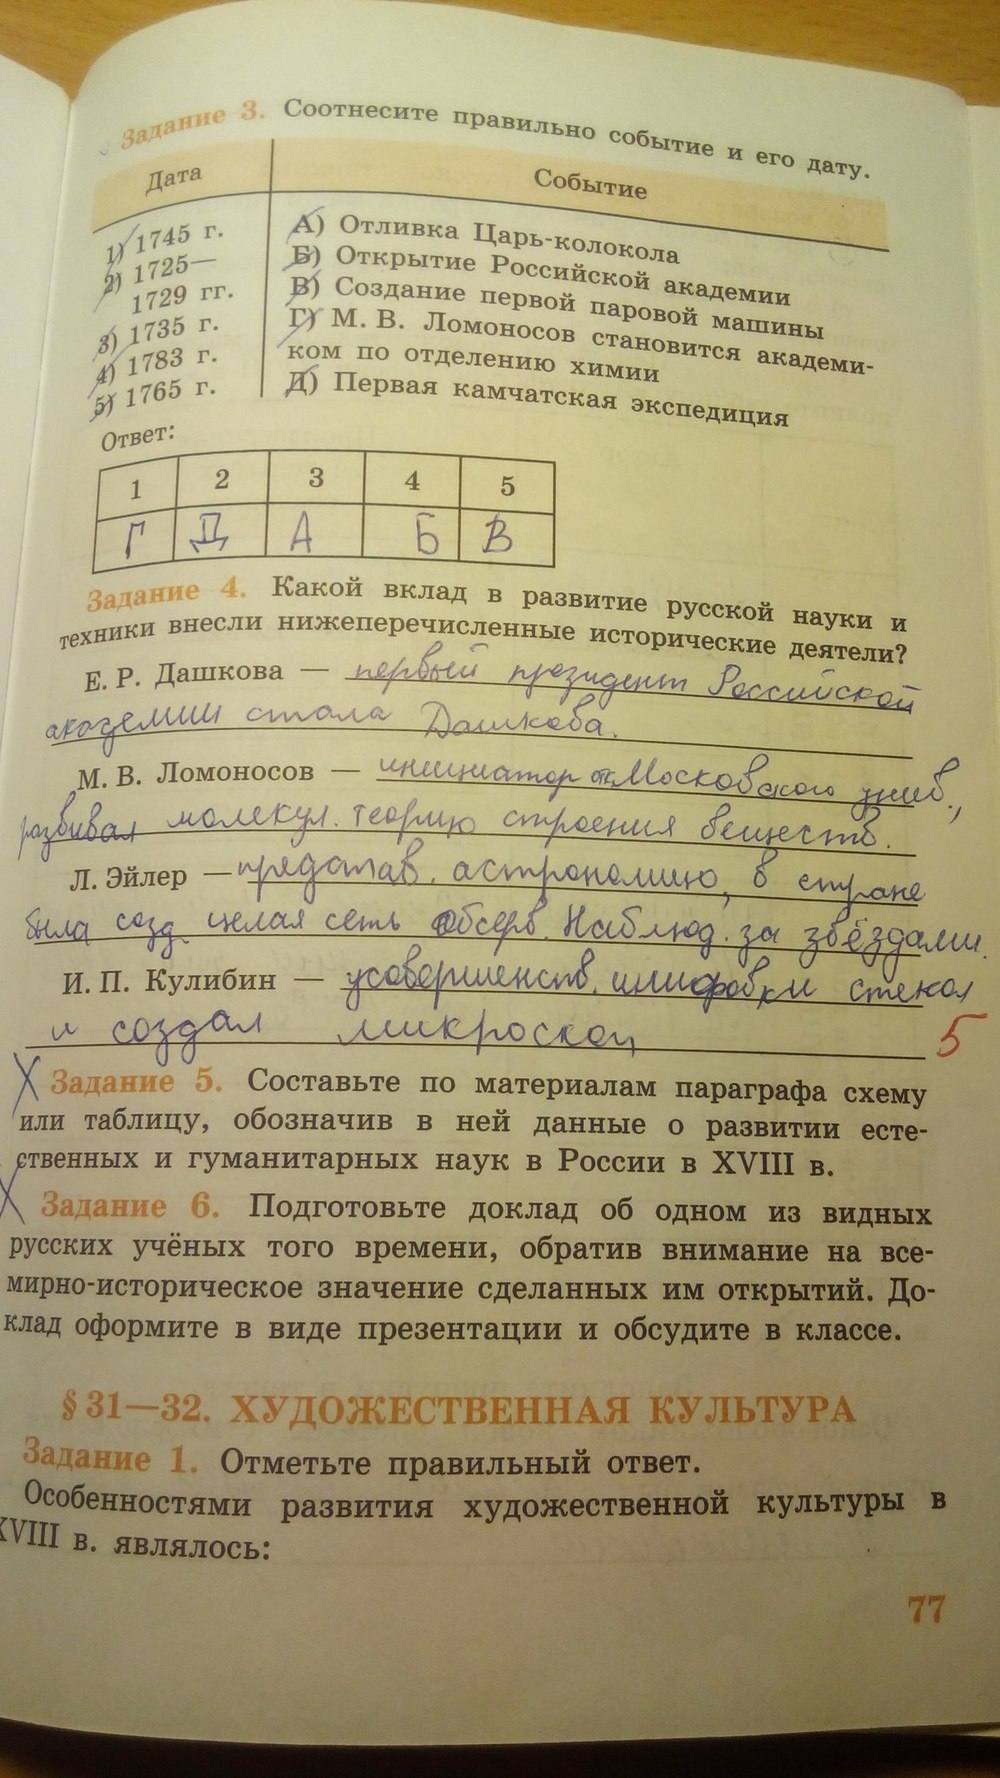 Задание 3. Соотнесите правильно событие и его дату.
Дата
Событие
1) 1745 г.
2) 1725—
1729 гг.
3) 1735 г.
4) 1783 г.
5) 1765 г.
А) Отливка Царь-колокола
Б) Открытие Российской академии
В) Создание первой паровой машины
Г) М. В. Ломоносов становится академи-
ком по отделению химии
Д) Первая камчатская экспедиция
Ответ:
1 2 3 4 5
Г Д А Б В
Задание 4. Какой вклад в развитие русской науки и
техники внесли нижеперечисленные исторические деятели?
Е. Р. Дашкова — первый президент Российской
академии стала Дашкова.
М. В. Ломоносов — инициатор отк. Московского унив.,
развивал молекул. теорию строения веществ.
Л. Эйлер — представ. астрономию, в стране
была созд. целая сеть обсерв. Наблюд. за звёздами.
И. П. Кулибин — усовершенств. шлифовки стекол
и создал микроскоп
5
Задание 5. Составьте по материалам параграфа схему
или таблицу, обозначив в ней данные о развитии есте-
ственных и гуманитарных наук в России в XVIII в.
Задание 6. Подготовьте доклад об одном из видных
русских учёных того времени, обратив внимание на все-
мирно-историческое значение сделанных им открытий. До-
клад оформите в виде презентации и обсудите в классе.
§ 31—32. ХУДОЖЕСТВЕННАЯ КУЛЬТУРА
Задание 1. Отметьте правильный ответ.
Особенностями развития художественной культуры в
XVIII в. являлось:
77